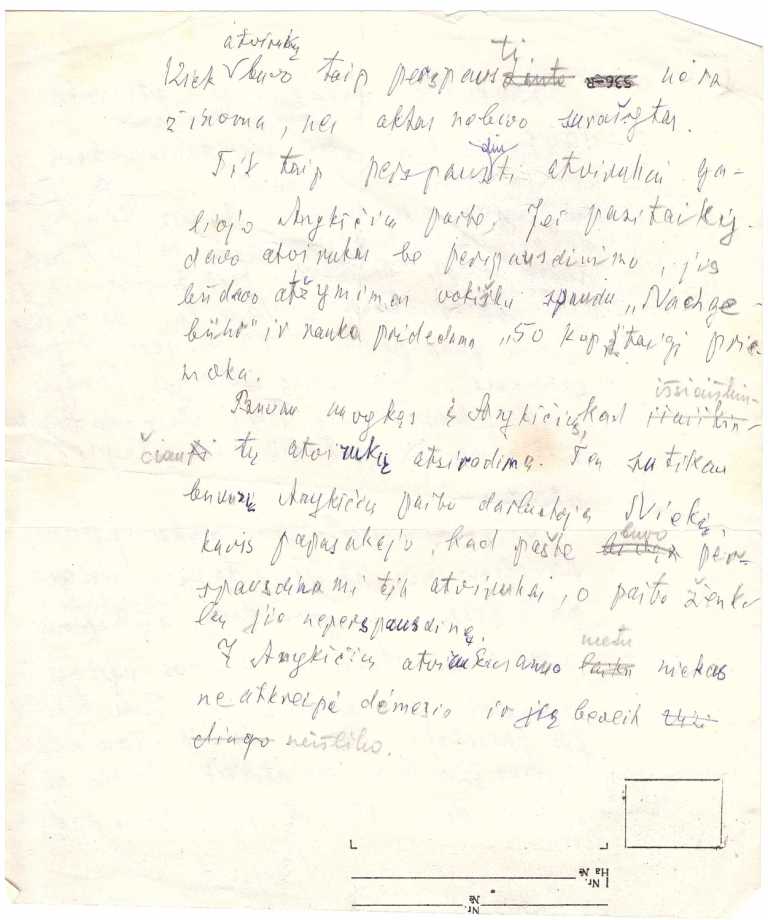 atvirukų
Kiek buvo taip perspausti nėra
žinoma, nes aktas nebuvo surašytas.
Tik taip perspausdinti atvirukai ga-
liojo Anykščių pašte. Jei pasitaiky-
davo atvirukas be perspausdinimo, jis
būdavo atžymimas vokišku spaudu „Nachge-
bühr" ir ranka pridedama „50 kap. taigi prie-
moka.
išsiaiškin-
nuvykęs į Anykščius, kad
čiau tų atvirukų atsiradimą. Ten sutikau
buvusį Anykščių pašto darbuotoją
kuris papasakojo, kad pašte buvo per-
spausdinami tik atvirukai, o pašto ženk-
lų jie neperspausdinę.
metu
Į Anykščių atvirukus anuo laiku niekas
neatkreipė dėmesio ir jų beveik
dingo neišliko.
Nr.
На №
Nr.
№